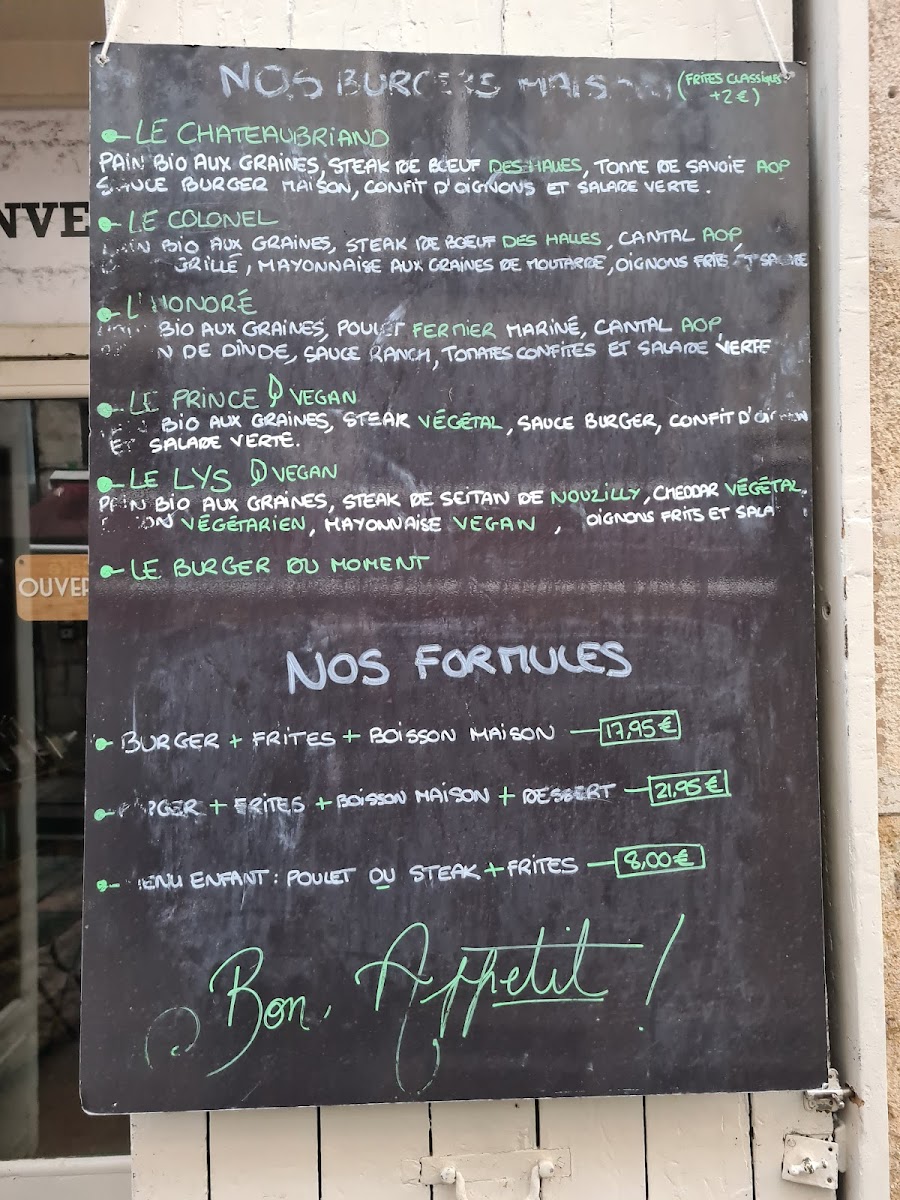 NOS BURGERS MAISON (FRITES CLASSIQUES
+2€)
LE CHATEAUBRIAND
PAIN BIO AUX GRAINES, STEAK DE BŒUF DES HALLES, TOMME DE SAVOIE AOP
SAUCE BURGER MAISON, CONFIT D'OIGNONS ET SALADE VERTE.
LE COLONEL
PAIN BIO AUX GRAINES, STEAK DE BŒUF DES HALLES, CANTAL AOP,
GRILLÉ, MAYONNAISE AUX GRAINES DE MOUTARDE, OIGNONS FRITS ET SALADE
L'HONORÉ
BIO AUX GRAINES, POULET FERMIER MARINÉ, CANTAL AOP,
DE DINDE, SAUCE RANCH, TOMATES CONFITES ET SALADE VERTE
LE PRINCE VEGAN
BIO AUX GRAINES, STEAK VÉGÉTAL, SAUCE BURGER, CONFIT D'OIGNON
ET SALADE VERTE.
LE LYS VEGAN
PAIN BIO AUX GRAINES, STEAK DE SEITAN DE NOUZILLY, CHEDDAR VÉGÉTAL,
VÉGÉTARIEN, MAYONNAISE VEGAN, OIGNONS FRITS ET SALA
LE BURGER DU MOMENT
NOS FORMULES
BURGER + FRITES + BOISSON MAISON 17,95€
BURGER + FRITES + BOISSON MAISON + DESSERT 21,95€
MENU ENFANT : POULET OU STEAK + FRITES 8,00€
Bon Appetit !
NVE
OUVER